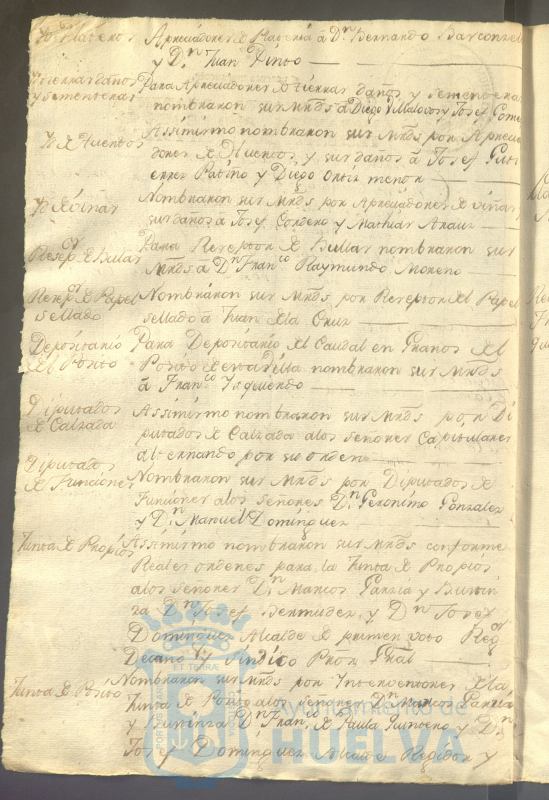 Apreciadores de Plateria á Dn. Bernardo Barconzel
y Dn. Juan Pinto
Yd. tierras daños
y sementeras
Para Apreciadores de tierras daños y sementeras
nombraron sus Mrds á Diego Villalovos y Josef Gomes
Yd. de Huertos
Assimismo nombraron sus Mrds por Aprecia
dores de Huertos, y sus daños á Josef Guti
errez Patiño y Diego Ortiz menor
Yd. de viñas
Nombraron sus Mrds por Apreciadores de viñas
sus daños á Josef Cordero y Mathias Arauz
Resepor. de Bulas
Para Reseptor de Bullas nombraron sus
Mrds á Dn Franco Raymundo Moreno
Resepor. de Papel
sellado
Nombraron sus Mrds por Reseptor del Papel
sellado á Juan de la Cruz
Depositario
del Posito
Para Depositario del Caudal en Granos del
Posito de esta Villa nombraron sus Mrds
á Franco Ysquierdo
Diputados
de Calzada
Assimismo nombraron sus Mrds por Di
putados de Calzada alos señores Capitulares
alternando por su orden
Diputados
de Funciones
Nombraron sus Mrds por Diputados de
Funciones alos Señores Dn. Geronimo Gonzalez
y Dn. Manuel Dominguez
Junta de Propios
Assimismo nombraron sus Mrds conforme
Reales ordenes para la Junta de Propios
alos Señores Dn. Marcos Garzia y
Dn Josef Bermudez, y Dn Josef
Dominguez Alcalde de primer voto Regor
Decano y Sindico Pror Gral
Junta de Posito
Nombraron sus Mrds por Yntendentes de la
Junta de Posito alos señores Dn Marcos Garzia
Dn. Franco de Paula Quintero y Dn
Josef Dominguez Alcalde Regidor y
PORTUS MARIS
ET TERRÆ
Ayuntamiento de
HUELVA